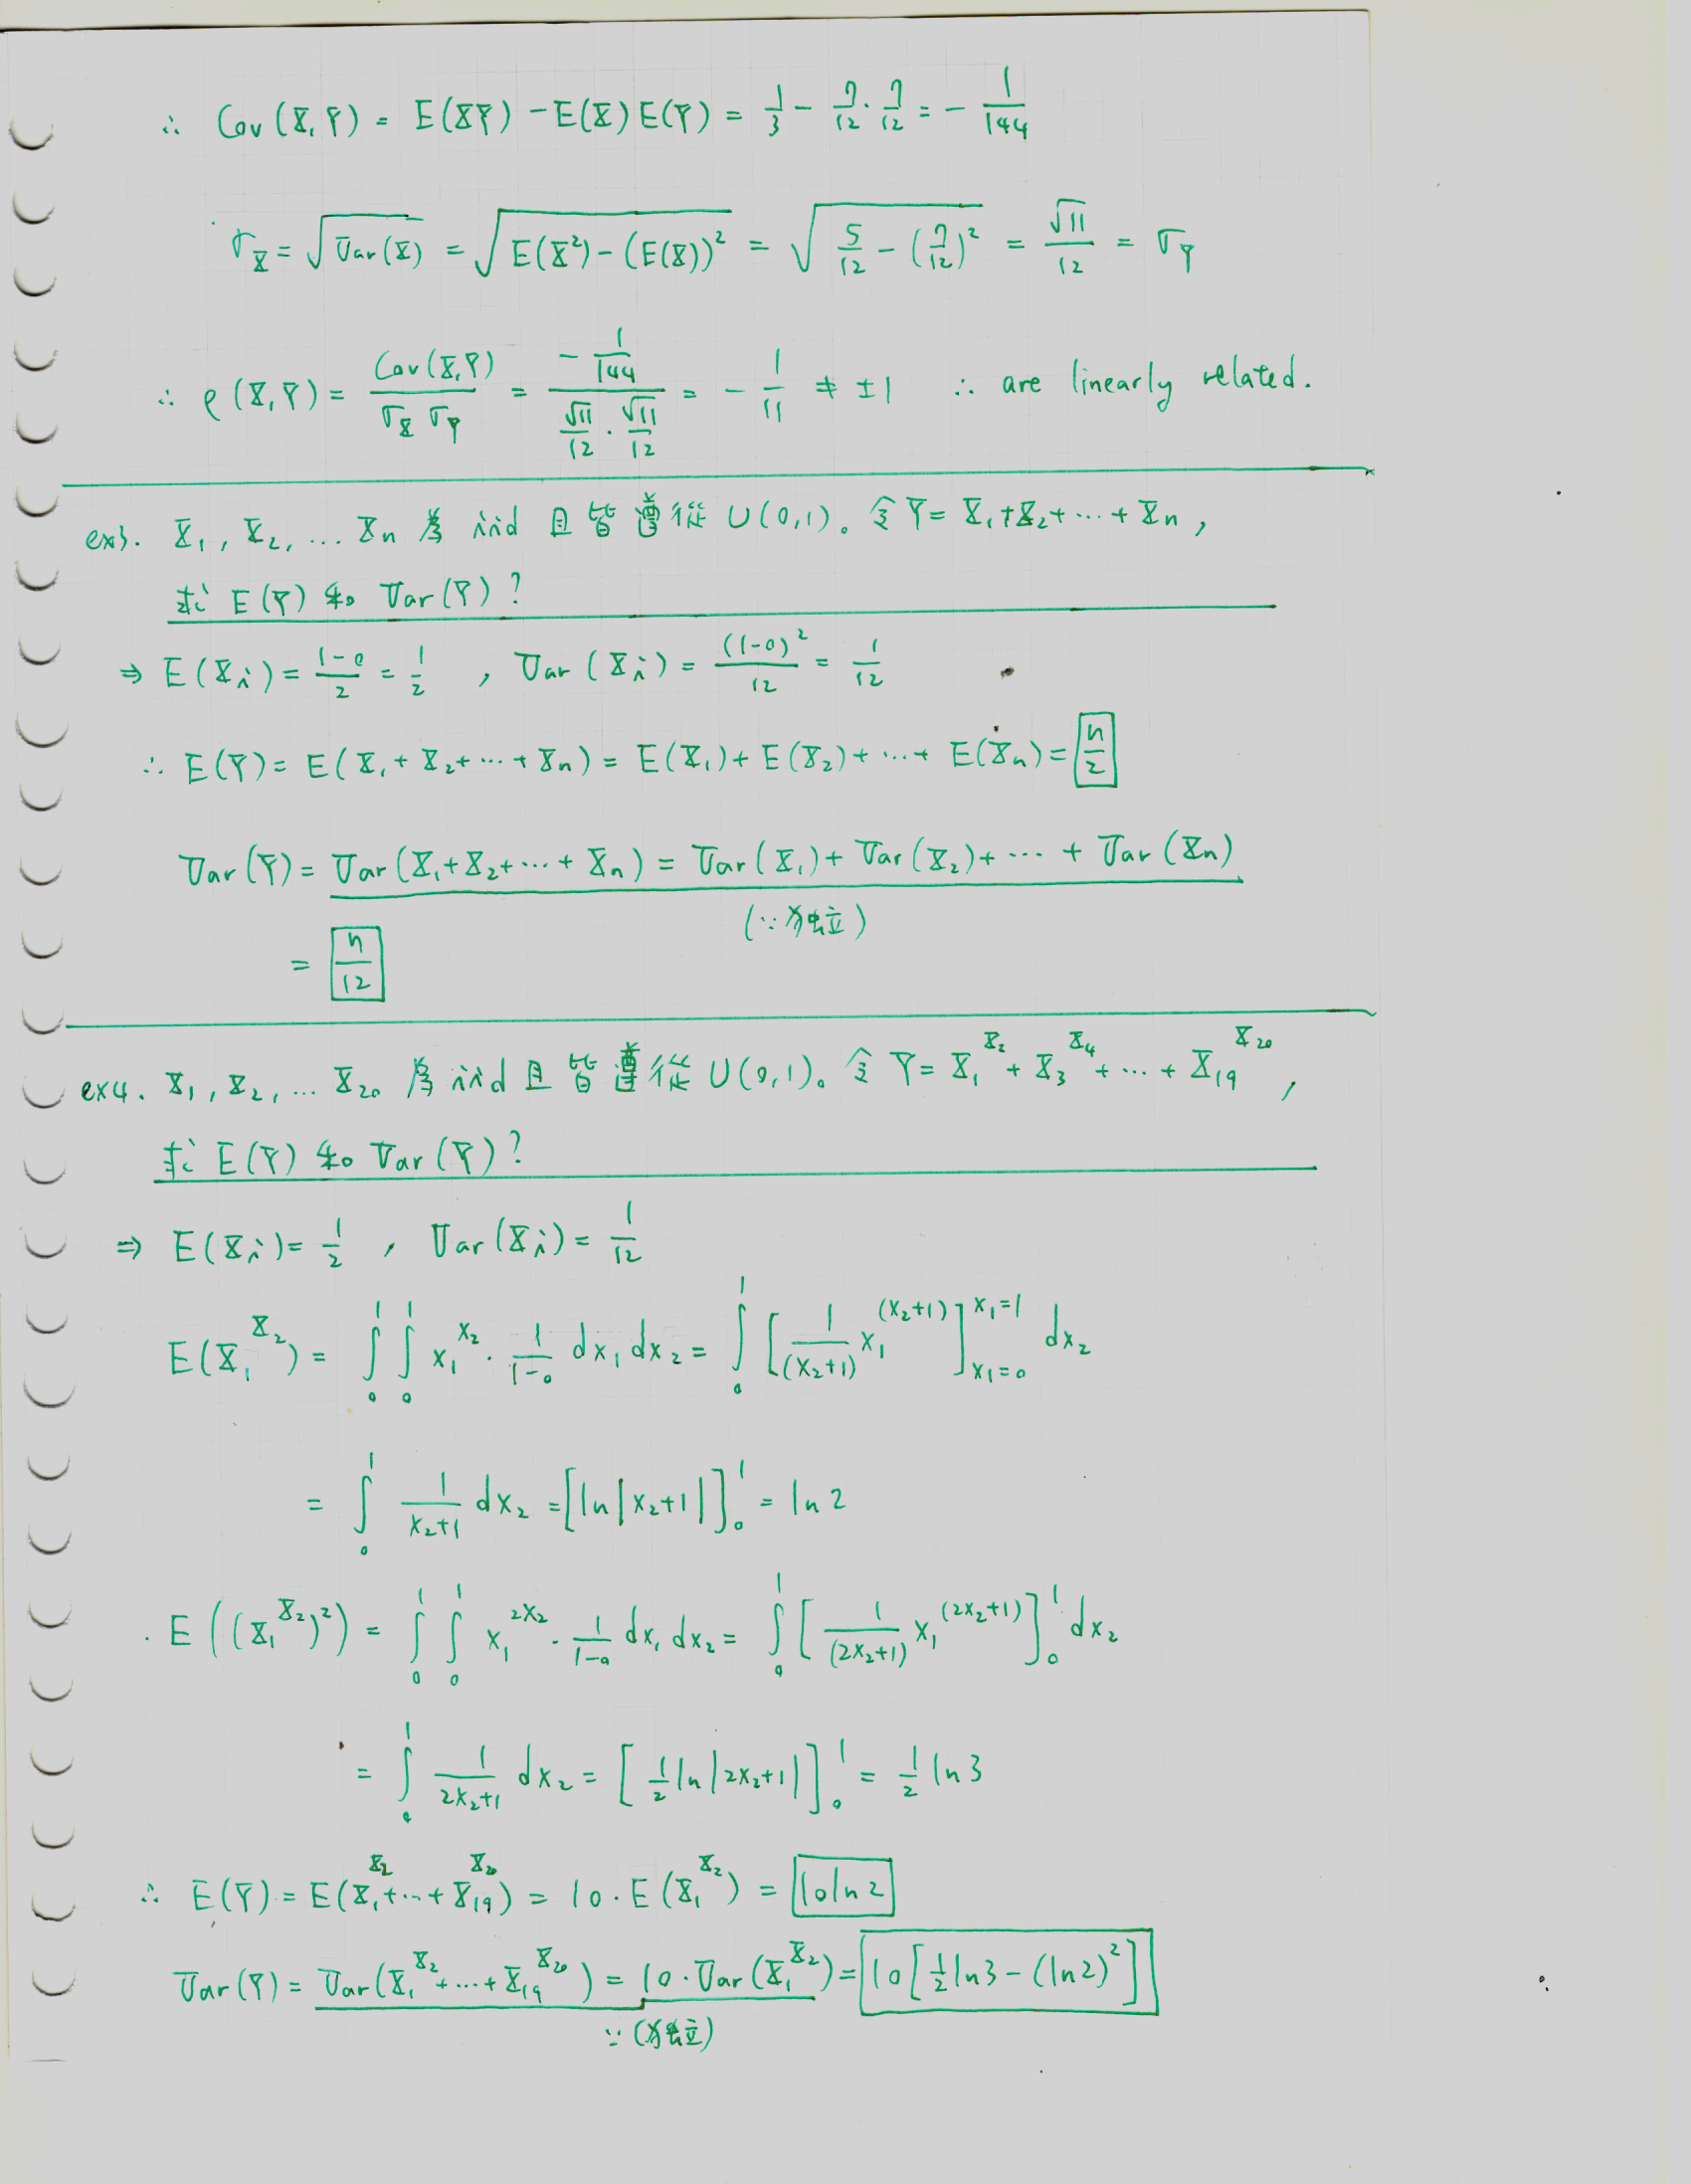 ∴ Cov(X,Y) = E(XY) - E(X)E(Y) = 1/3 - 7/12 · 7/12 = - 1/144
σ_X = √Var(X) = √(E(X²) - (E(X))²) = √(5/12 - (7/12)²) = √11/12 = σ_Y
∴ ρ(X,Y) = Cov(X,Y)/(σ_X σ_Y) = (-1/144)/(√11/12 · √11/12) = - 1/11 ≠ ±1 ∴ are linearly related.
ex3. X₁, X₂, ... Xn 為 iid 且皆遵從 U(0,1)。令 Y = X₁+X₂+⋯+Xn,
求 E(Y) 和 Var(Y)?
⇒ E(Xi) = (1-0)/2 = 1/2 , Var(Xi) = (1-0)²/12 = 1/12
∴ E(Y) = E(X₁+X₂+⋯+Xn) = E(X₁)+E(X₂)+⋯+E(Xn) = n/2
Var(Y) = Var(X₁+X₂+⋯+Xn) = Var(X₁)+Var(X₂)+⋯+Var(Xn)
(∵為独立)
= n/12
ex4. X₁, X₂, ... X₂₀ 為 iid 且皆遵從 U(0,1)。令 Y = X₁^X₂ + X₃^X₄ + ⋯ + X₁₉^X₂₀ ,
求 E(Y) 和 Var(Y)?
⇒ E(Xi) = 1/2 , Var(Xi) = 1/12
E(X₁^X₂) = ∫₀¹∫₀¹ x₁^x₂ · 1/(1-0) dx₁ dx₂ = ∫₀¹ [1/(x₂+1) x₁^(x₂+1)]_{x₁=0}^{x₁=1} dx₂
= ∫₀¹ 1/(x₂+1) dx₂ = [ln|x₂+1|]₀¹ = ln2
E((X₁^X₂)²) = ∫₀¹∫₀¹ x₁^2x₂ · 1/(1-0) dx₁ dx₂ = ∫₀¹ [1/(2x₂+1) x₁^(2x₂+1)]₀¹ dx₂
= ∫₀¹ 1/(2x₂+1) dx₂ = [1/2 ln|2x₂+1|]₀¹ = 1/2 ln3
∴ E(Y) = E(X₁^X₂+⋯+X₁₉^X₂₀) = 10·E(X₁^X₂) = 10ln2
Var(Y) = Var(X₁^X₂+⋯+X₁₉^X₂₀) = 10·Var(X₁^X₂) = 10[1/2 ln3 - (ln2)²]
∵(為独立)